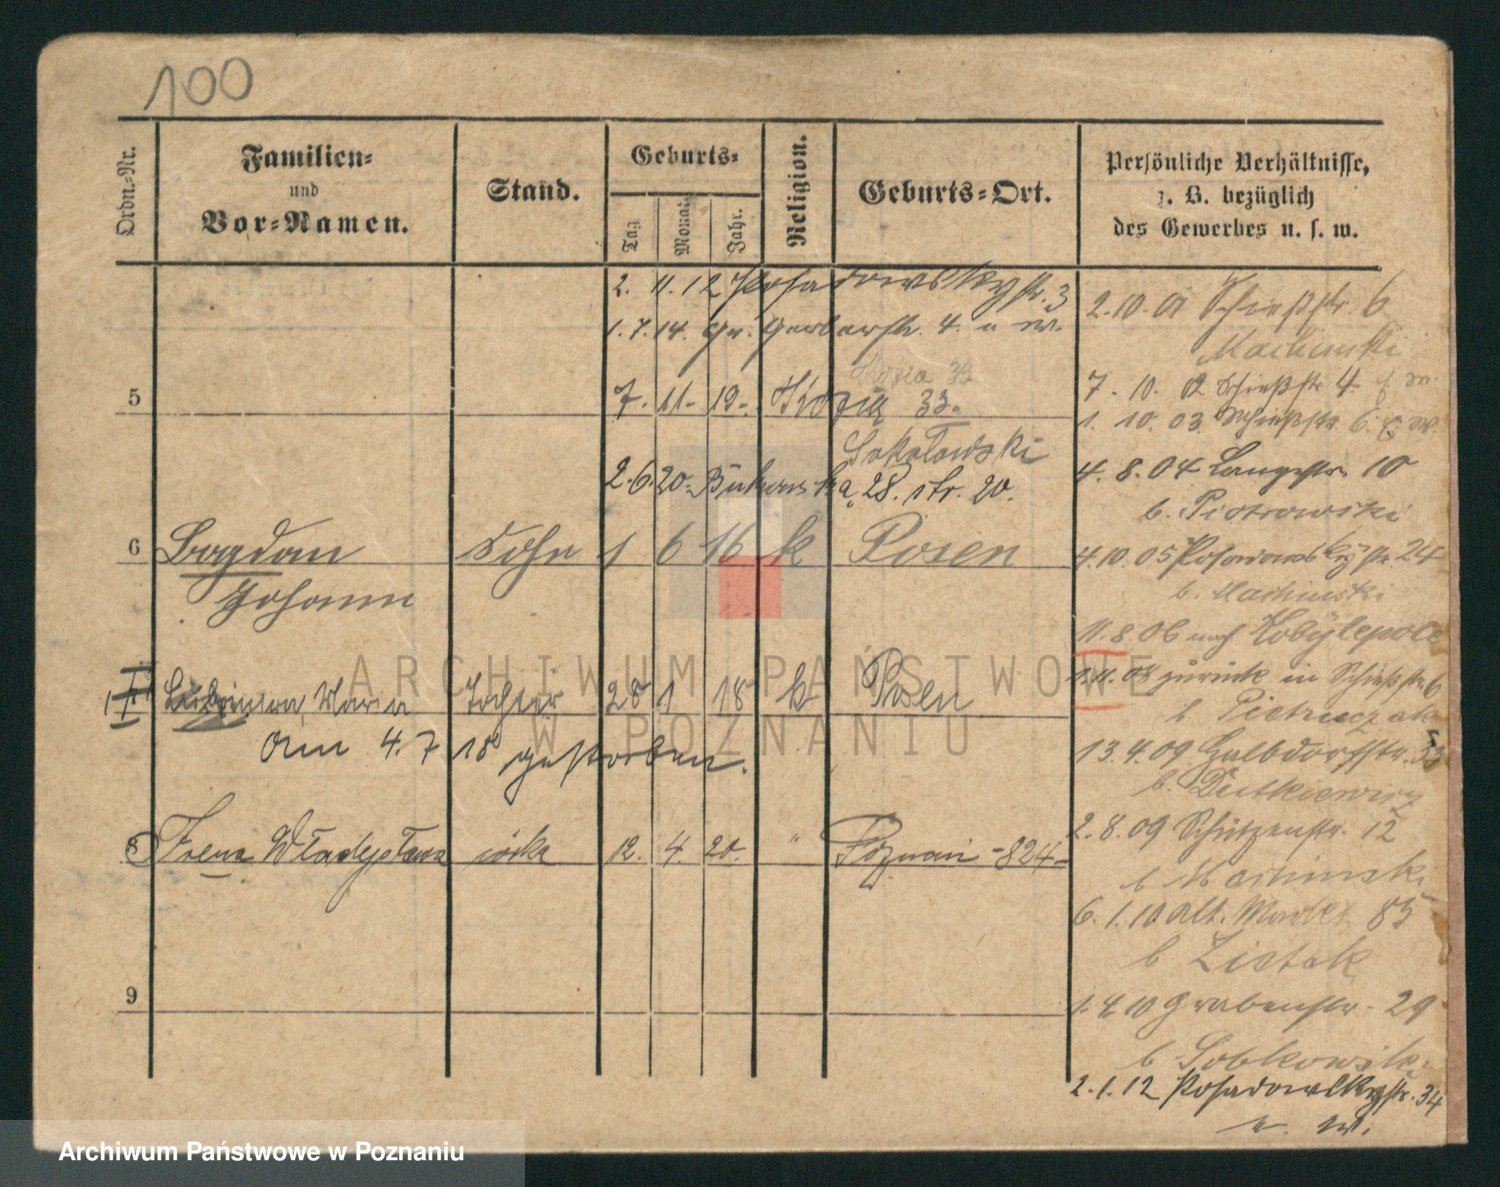 100
Ordn.=Nr.
Familien=
und
Vor=Namen.
Stand.
Geburts=
Tag
Monat
Jahr.
Religion.
Geburts=Ort.
Persönliche Verhältnisse,
z. B. bezüglich
des Gewerbes u. s. w.
2. 11. 12 Posadowskystr. 3
1. 7. 14. Gr. Gerberstr. 4. e w.
33
5
7. 11. 19. Kozia 33.
Sokołowski
2. 6. 20. Bukowska 28. str. 20.
6 Bogdan Sohn 1 6 16 k Posen
Johann
Maria Tochter 28 1 18 k Posen
am 4. 7 18 gestorben.
8 Irena Władysława córka 12. 4. 20. " Poznań -824-
9
2. 10. 01 Schießstr. 6
7. 10. 02 Schießstr. 4
1. 10. 03 Schießstr. 6
4. 8. 04 Langestr. 10
b. Piotrowski
4. 10. 05 Posadowskystr. 24
11. 8. 06 nach Kobylepole
1. 11. 08 zurück in Schießstr. 6
b. Pietruczak
13. 4. 09 Halbdorfstr. 33
b. Dutkiewicz
2. 8. 09 Schützenstr. 12
6. 1. 10 Alt. Markt 85
b Zistak
1. 4. 10 Grabenstr. 29
b Sobkowski
2. 1. 12 Posadowskystr. 34
e. w.
ARCHIWUM PAŃSTWOWE
W POZNANIU
Archiwum Państwowe w Poznaniu